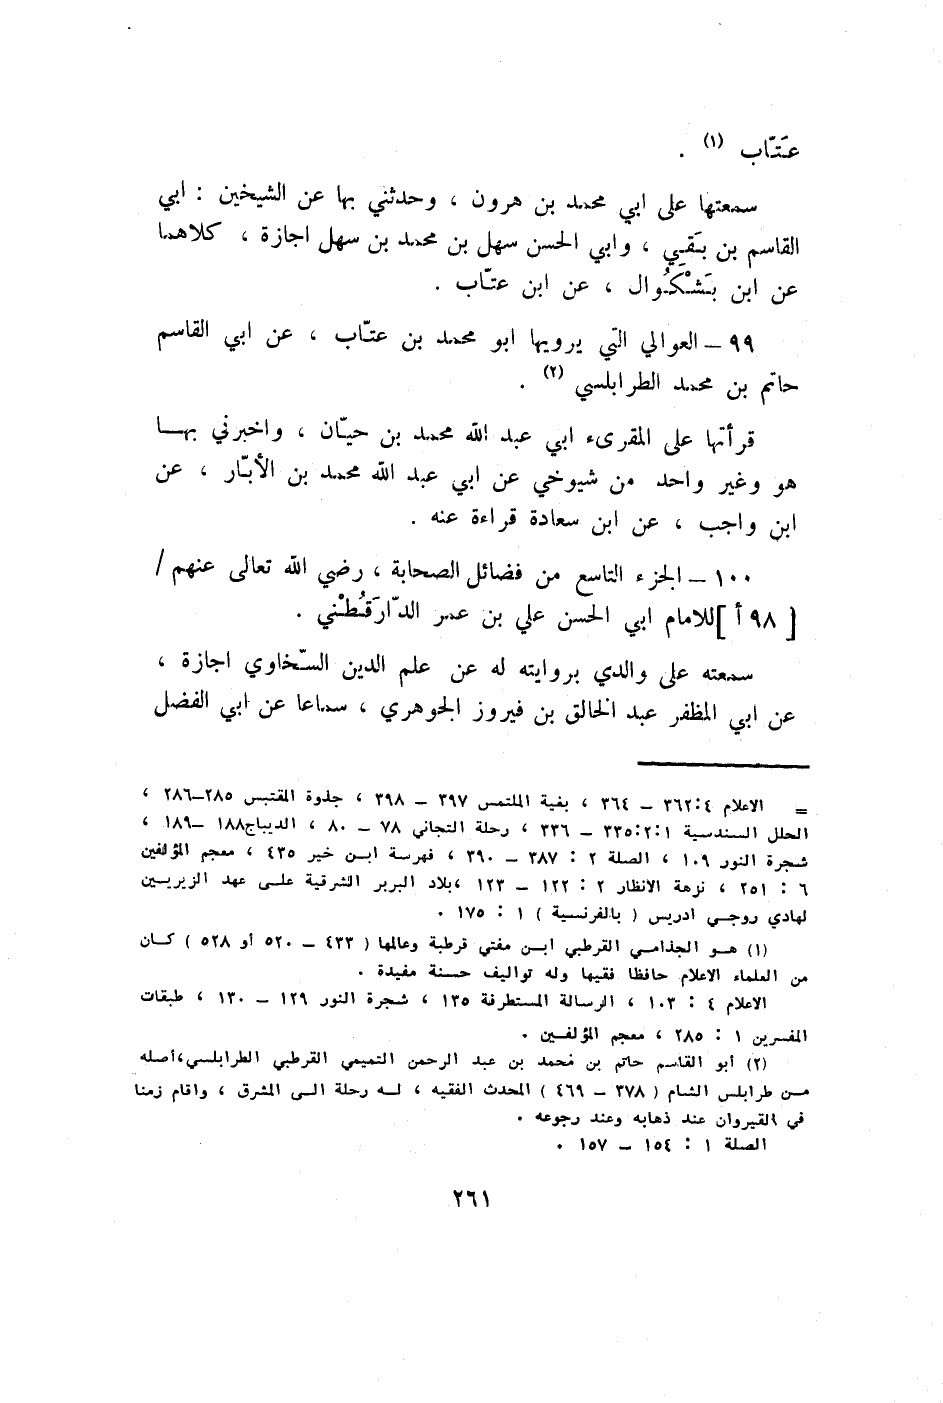 عتّاب (١) .
سمعتها على ابي محمد بن هرون ، وحدثني بها عن الشيخين : ابي
القاسم بن بَقيِ ، وابي الحسن سهل بن محمد بن سهل اجازة ، كلاهما
عن ابن بَشْكُوال ، عن ابن عتّاب .
٩٩ – العوالي التي يرويها ابو محمد بن عتّاب ، عن ابي القاسم
حاتم بن محمد الطرابلسي (٢) .
قرأتها على المقرىء ابي عبد الله محمد بن حيّان ، واخبرني بهـــا
هو وغير واحد من شيوخي عن ابي عبد الله محمد بن الأبّار ، عن
ابن واجب ، عن ابن سعادة قراءة عنه .
١٠٠ – الجزء التاسع من فضائل الصحابة ، رضي الله تعالى عنهم /
[ ٩٨ أ ] للامام ابي الحسن علي بن عمر الدّارَقُطْني .
سمعته على والدي بروايته له عن علم الدين السّخاوي اجازة ،
عن ابي المظفر عبد الخالق بن فيروز الجوهري ، سماعا عن ابي الفضل
= الاعلام ٤:٣٦٢ – ٣٦٤ ، بغية الملتمس ٣٩٧ – ٣٩٨ ، جذوة المقتبس ٢٨٥–٢٨٦ ،
الحلل السندسية ١:٢:٣٣٥ – ٣٣٦ ، رحلة التجاني ٧٨ – ٨٠ ، الديباج١٨٨ –١٨٩ ،
شجرة النور ١٠٩ ، الصلة ٢ : ٣٨٧ – ٣٩٠ ، فهرسة ابـن خير ٤٣٥ ، معجم المؤلفين
٦ : ٢٥١ ، نزهة الانظار ٢ : ١٢٢ – ١٢٣ ،بلاد البربر الشرقية علـى عهد الزيريـين
لهادي روجـي ادريس ( بالفرنسية ) ١ : ١٧٥ .
(١) هـو الجذامـي القرطبي ابـن مفتي قرطبة وعالمها ( ٤٣٣ – ٥٢٠ أو ٥٢٨ ) كـان
من العلماء الاعلام حافظا فقيها وله تواليف حسنة مفيدة .
الاعلام ٤ : ١٠٣ ، الرسالة المستطرفة ١٣٥ ، شجرة النور ١٢٩ – ١٣٠ ، طبقات
المفسرين ١ : ٢٨٥ ، معجم المؤلفـين .
(٢) أبو القاسم حاتم بن محمد بن عبد الرحمن التميمي القرطبي الطرابلسي،أصله
مـن طرابلس الشام ( ٣٧٨ – ٤٦٩ ) المحدث الفقيه ، لـه رحلة الـى المشرق ، واقام زمنا
في القيروان عند ذهابه وعند رجوعه .
الصلة ١ : ١٥٤ – ١٥٧ .
٢٦١